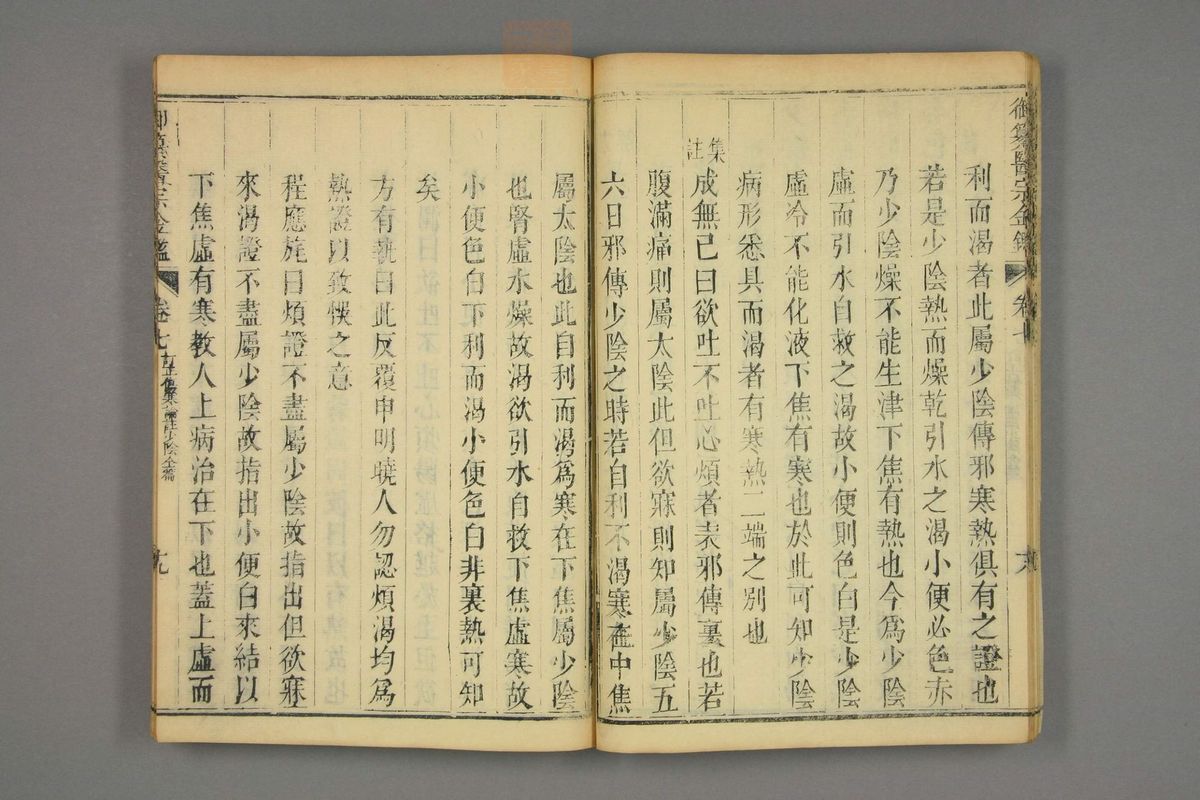 御纂醫宗金鑑 卷七
利而渴者此屬少陰傳邪寒熱俱有之證也
若是少陰熱而燥乾引水之渴小便必色赤
乃少陰燥不能生津下焦有熱也今爲少陰
虛而引水自救之渴故小便則色白是少陰
虛冷不能化液下焦有寒也於此可知少陰
病形悉具而渴者有寒熱二端之別也
集註成無已曰欲吐不吐心煩者表邪傳裏也若
腹滿痛則屬太陰此但欲寐則知屬少陰五
六日邪傳少陰之時若自利不渴寒在中焦
屬太陰也此自利而渴爲寒在下焦屬少陰
也腎虛水燥故渴欲引水自救下焦虛寒故
小便色白下利而渴小便色白非裏熱可知
矣
方有執曰此反覆申明曉人勿認煩渴均爲
熱證以致悞之意
程應旄曰煩證不盡屬少陰故指出但欲寐
來渴證不盡屬少陰故指出小便白來結以
下焦虛有寒教人上病治在下也蓋上虛而
御纂醫宗金鑑 卷七 少陰全篇 九